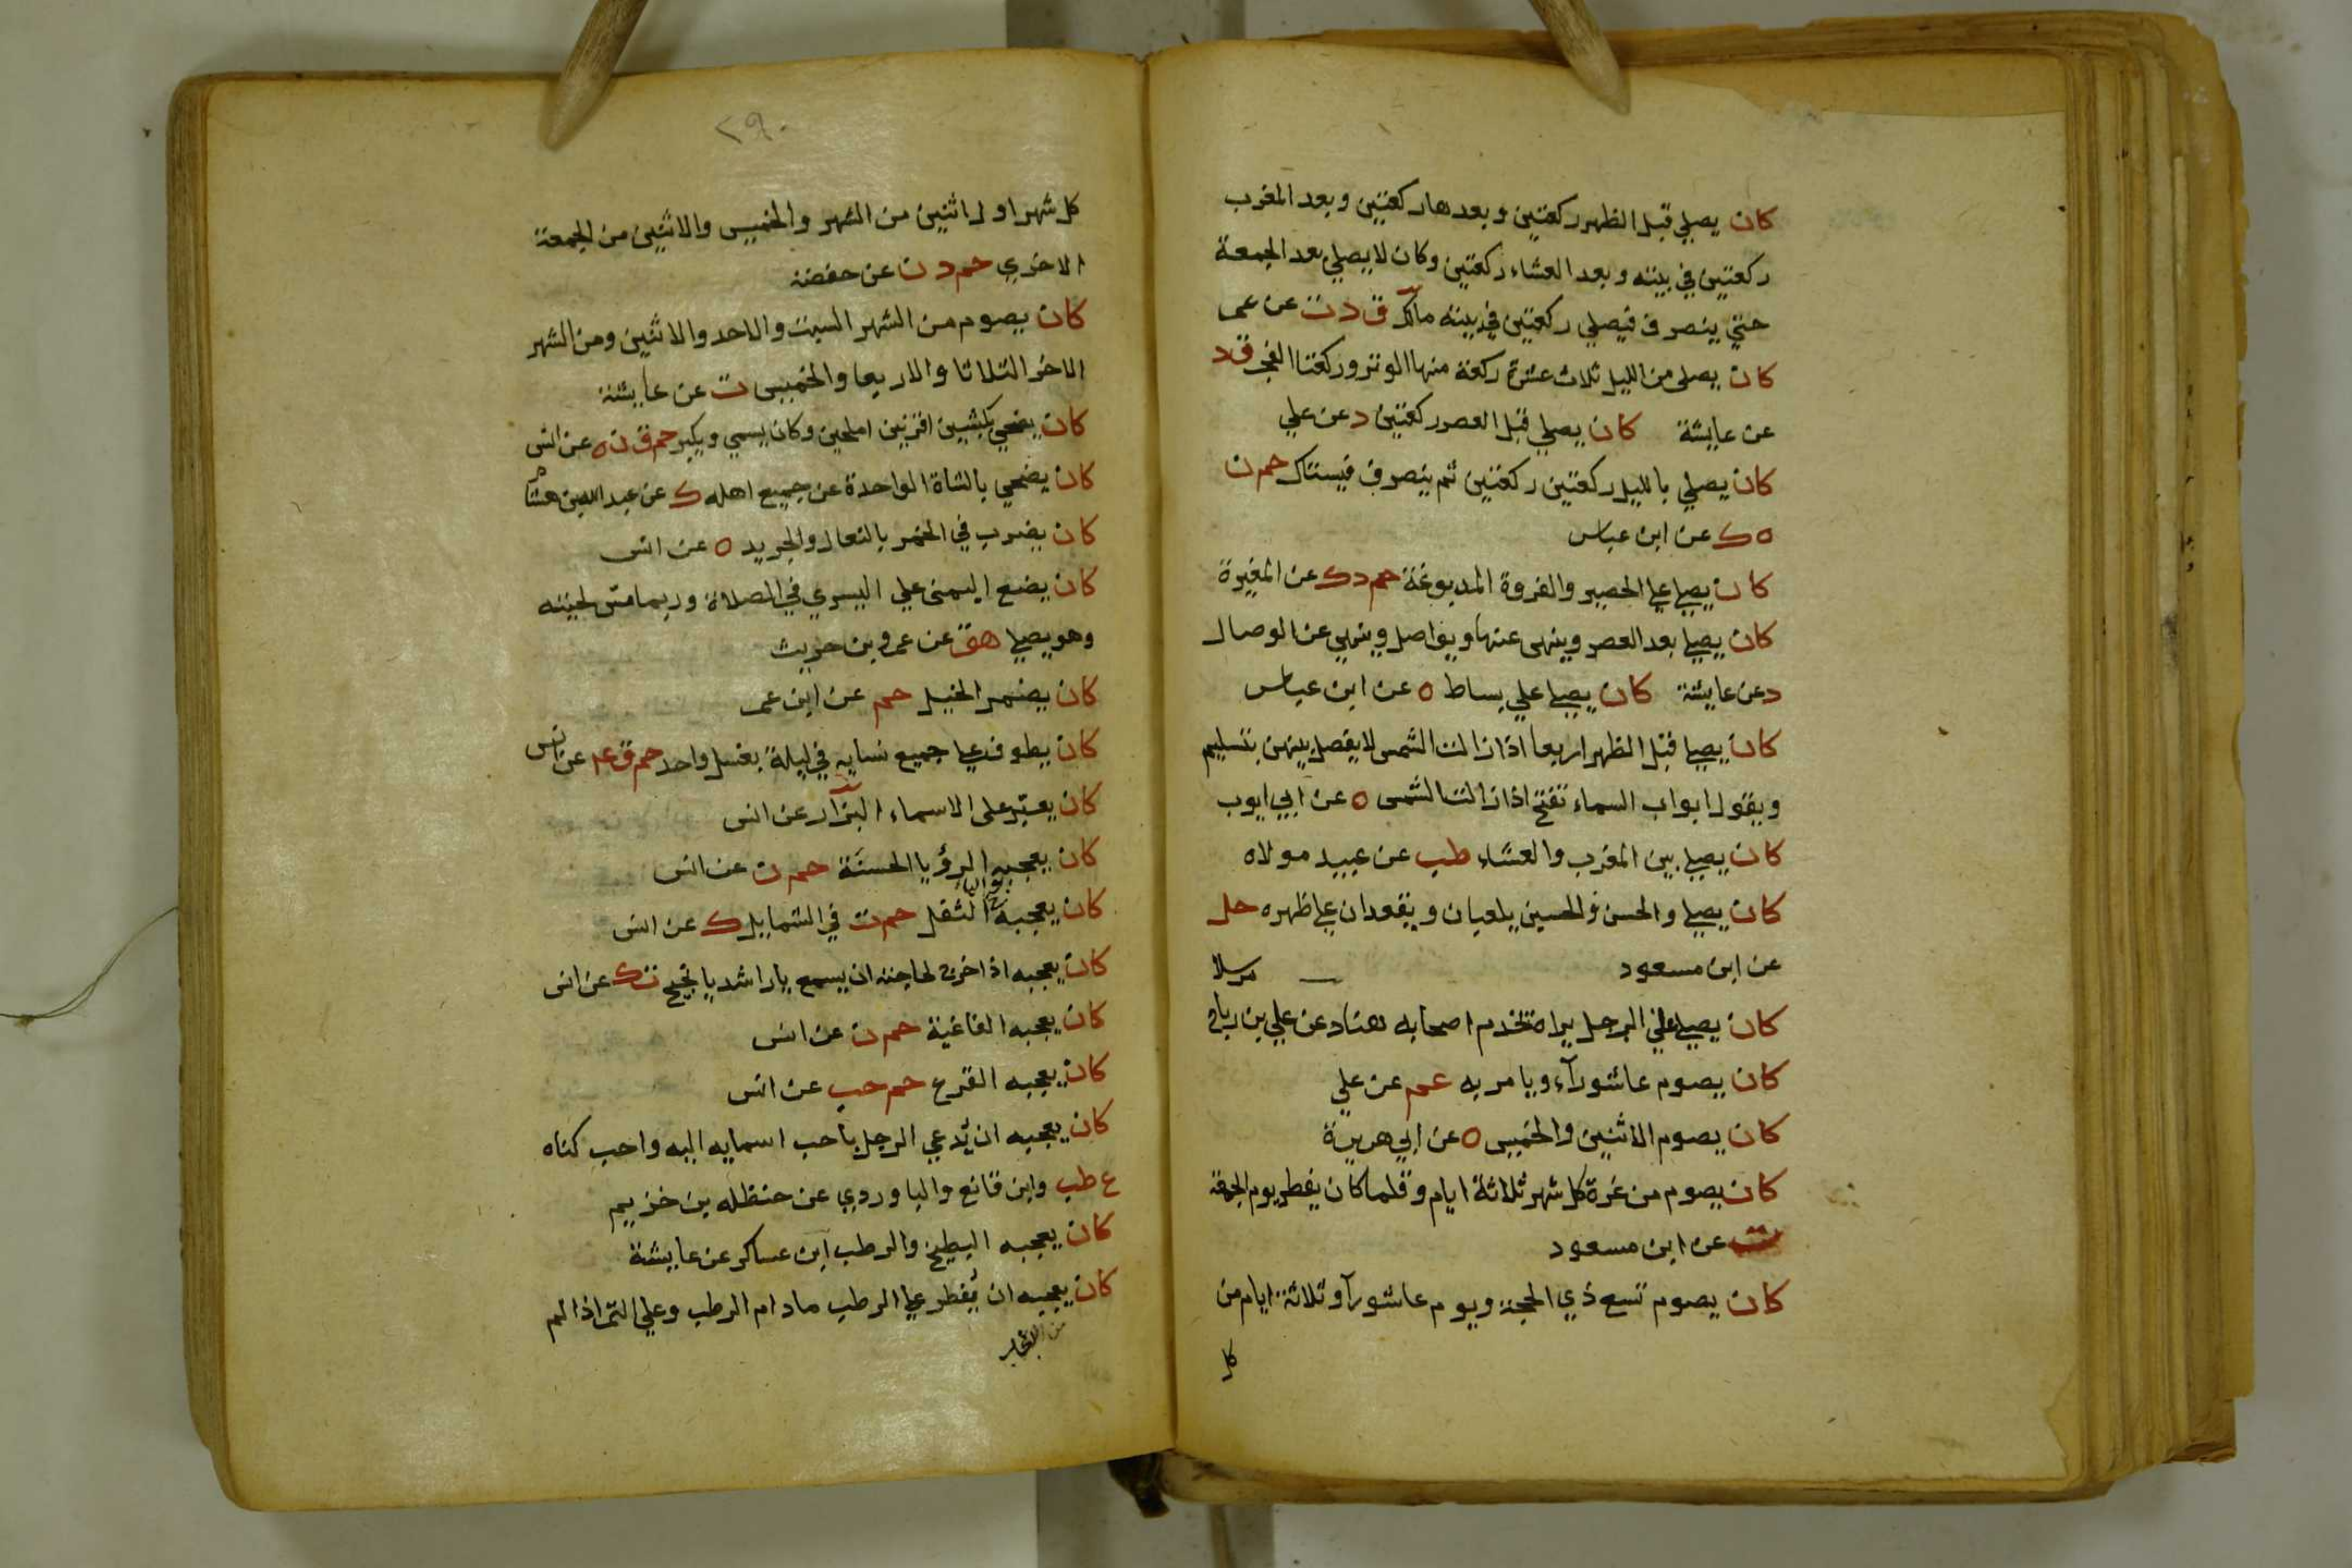 كان يصلي قبل الظهر ركعتين وبعدها ركعتين وبعد المغرب
ركعتين في بيته وبعد العشاء ركعتين وكان لا يصلي بعد الجمعة
حتي ينصرف فيصلي ركعتين في بيته مالك ق د ت عن عمر
كان يصلى من الليل ثلاث عشرة ركعة منها الوتر وركعتا الفجر ق د
عن عايشة كان يصلي قبل العصر ركعتين د عن علي
كان يصلي بالليل ركعتين ركعتين ثم ينصرف فيستاك حم ن
ه ك عن ابن عباس
كان يصلي علي الحصير والفروة المدبوغة حم د ك عن المغيرة
كان يصلي بعد العصر وينهى عنها ويواصل وينهي عن الوصال
د عن عايشة كان يصلي علي بساط ه عن ابن عباس
كان يصلي قبل الظهر اربعا اذا زالت الشمس لا يفصل بينهن بتسليم
ويقول ابواب السماء تفتح اذا زالت الشمس ه عن ابي ايوب
كان يصلي بين المغرب والعشاء طب عن عبيد مولاه
كان يصلي والحسن والحسين يلعبان ويقعدان علي ظهره حل
عن ابن مسعود
كان يصلي علي الرجل يراه يخدم اصحابه هناد عن علي بن رباح مرسلا
كان يصوم عاشورآء ويامر به عم عن علي
كان يصوم الاثنين والخميس ه عن ابي هريرة
كان يصوم من غرة كل شهر ثلاثة ايام وقلما كان يفطر يوم الجمعة
ت عن ابن مسعود
كان يصوم تسع ذي الحجة ويوم عاشورآ وثلاثة ايام من
كل
٢٩٠
كل شهر اول اثنين من الشهر والخميس والاثنين من الجمعة
الاخري حم د ن عن حفصة
كان يصوم من الشهر السبت والاحد والاثنين ومن الشهر
الاخر الثلاثا والاربعا والخميس ت عن عايشة
كان يضحي بكبشين اقرنين املحين وكان يسمي ويكبر حم ق ن ه عن انس
كان يضحي بالشاة الواحدة عن جميع اهله ك عن عبد الله بن هشام
كان يضرب في الخمر بالنعال والجريد ه عن انس
كان يضع اليمنى علي اليسري في الصلاة وربما مس لحيته
وهو يصلي هق عن عمرو بن حريث
كان يضمر الخيل حم عن ابن عمر
كان يطوف علي جميع نسايه في ليلة بغسل واحد حم ق عد عن انس
كان يعبر على الاسماء البزار عن انس
كان يعجبه الرؤيا الحسنَة حم ن عن انس
كان يعجبه الثفل حم ت في الشمايل ك عن انس
كان يعجبه اذا خرج لحاجته ان يسمع يا راشد يا نجيح ت ك عن انس
كان يعجبه الفاغية حم ن عن انس
كان يعجبه القرع حم حب عن انس
كان يعجبه ان يُدعي الرجل باحب اسمايه اليه واحب كناه
ع طب وابن قانع والباوردي عن حنظله بن خزيم
كان يعجبه البطيخ والرطب ابن عساكر عن عايشة
كان يعجبه ان يُفطر علي الرطب مادام الرطب وعلي التمر اذا لم